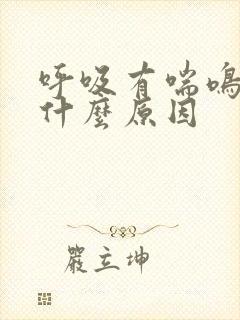 呼吸有喘鳴
什麼原因
嚴立坤